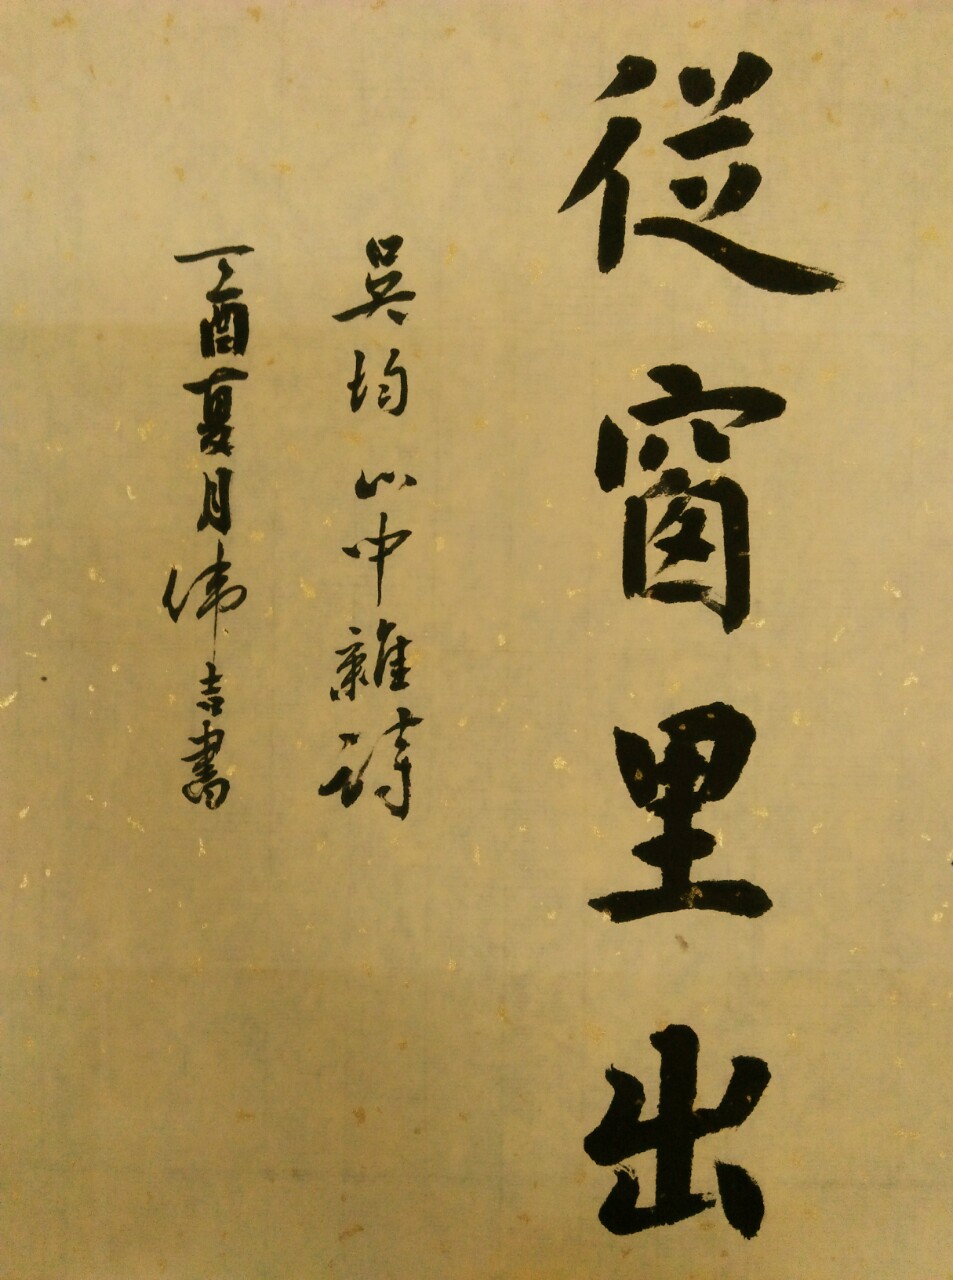 從窗里出
吳均山中雜詩
丁酉夏月偉吉書